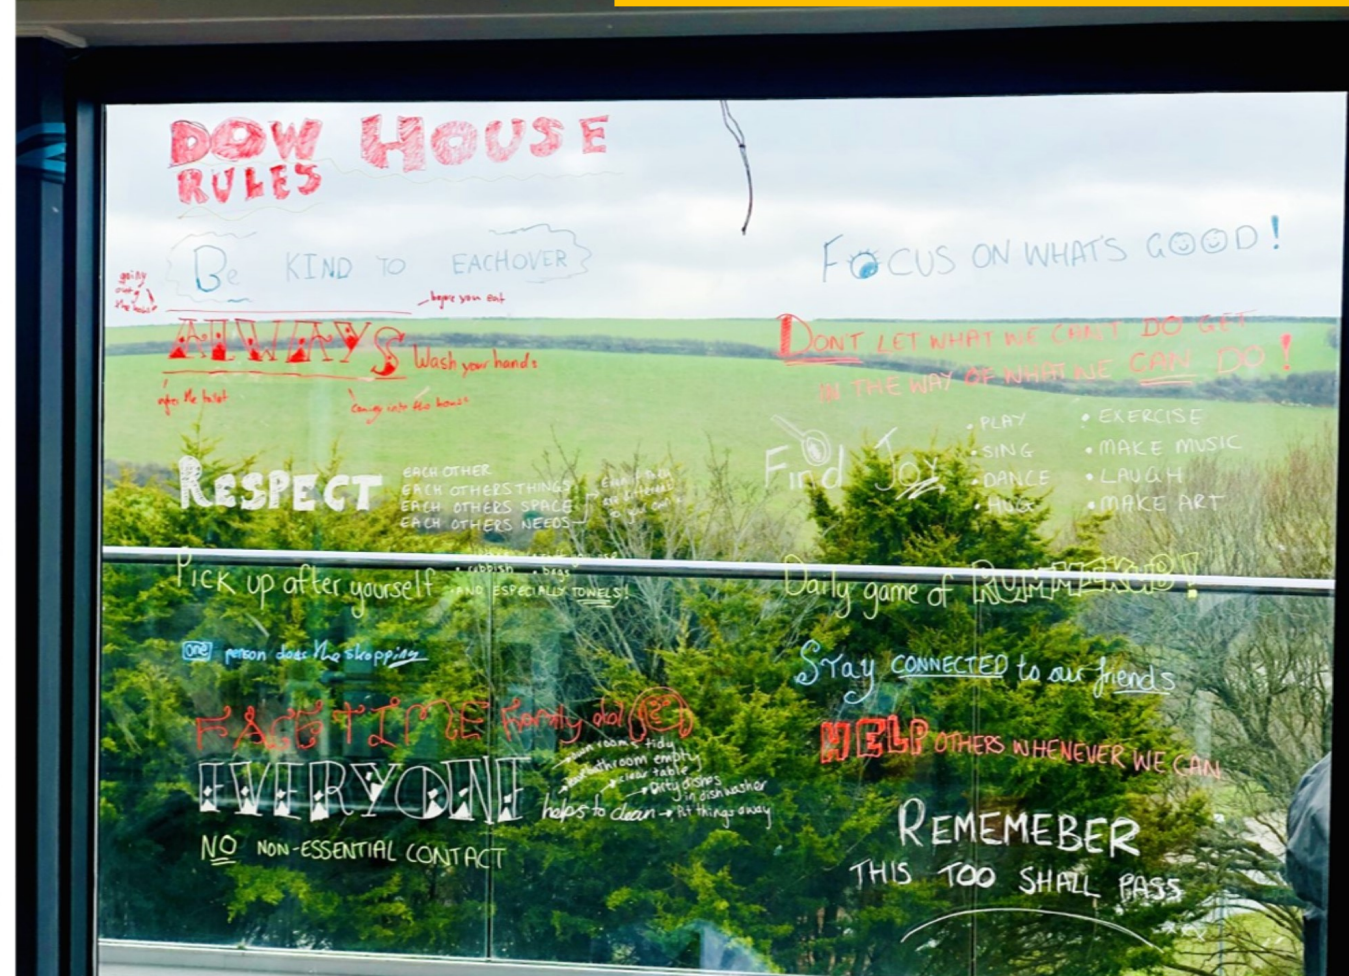 DOW HOUSE
RULES
Be KIND TO EACHOVER
going
out of
the house
before you eat
ALWAYS Wash your hands
after the toilet
coming into the house
RESPECT
EACH OTHER
EACH OTHERS THINGS
EACH OTHERS SPACE
EACH OTHERS NEEDS
are different
to your own
Pick up after yourself
• rubbish • bags
AND ESPECIALLY TOWELS!
one person does the shopping
FACETIME Family a lot
EVERYONE helps to clean
own rooms tidy
bathroom empty
clear table
Dirty dishes
in dishwasher
Put things away
NO NON-ESSENTIAL CONTACT
FOCUS ON WHAT'S GOOD!
DONT LET WHAT WE CAN'T DO GET
IN THE WAY OF WHAT WE CAN DO!
Find Joy
• PLAY
• SING
• DANCE
• HUG
• EXERCISE
• MAKE MUSIC
• LAUGH
• MAKE ART
Daily game of RUMMIKUB!
Stay CONNECTED to our friends
HELP OTHERS WHENEVER WE CAN
REMEMEBER
THIS TOO SHALL PASS